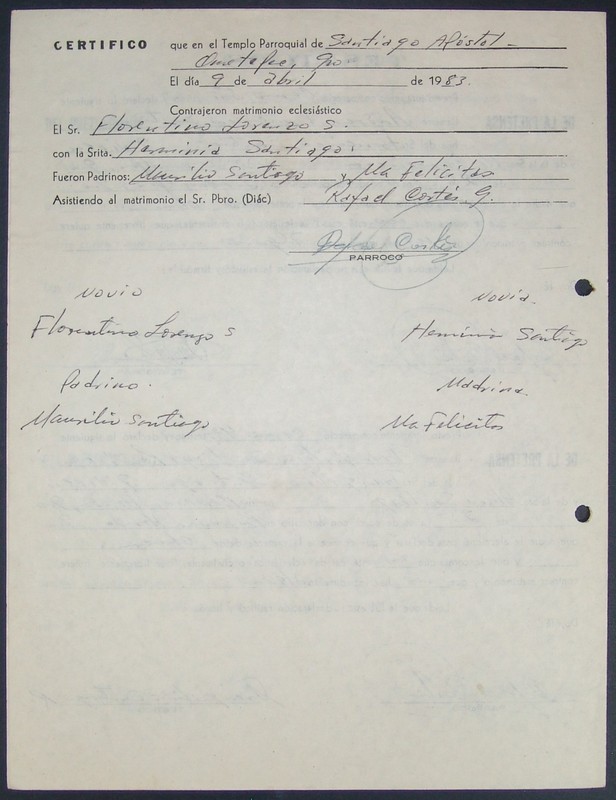 CERTIFICO que en el Templo Parroquial de Santiago Apóstol
Ometepec, Gro.
El día 9 de abril de 1983.
Contrajeron matrimonio eclesiástico
El Sr. Florentino Lorenzo S.
con la Srita. Herminia Santiago.
Fueron Padrinos: Maurilio Santiago y Ma Felicitas
Asistiendo al matrimonio el Sr. Pbro. (Diác) Rafael Cortés G.
Rafael Cortés
PARROCO
novio novia.
Florentino Lorenzo S Herminia Santiago
Padrino. Madrina
Maurilio Santiago Ma Felicitas